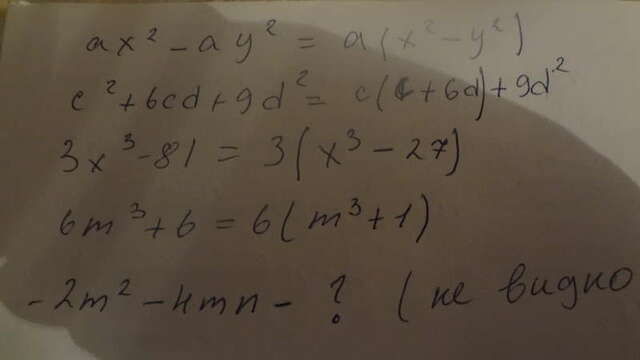 ax² - ay² = a(x² - y²)
c² + 6cd + 9d² = c(c + 6d) + 9d²
3x³ - 81 = 3(x³ - 27)
6m³ + 6 = 6(m³ + 1)
-2m² - 4mn - ? (не видно